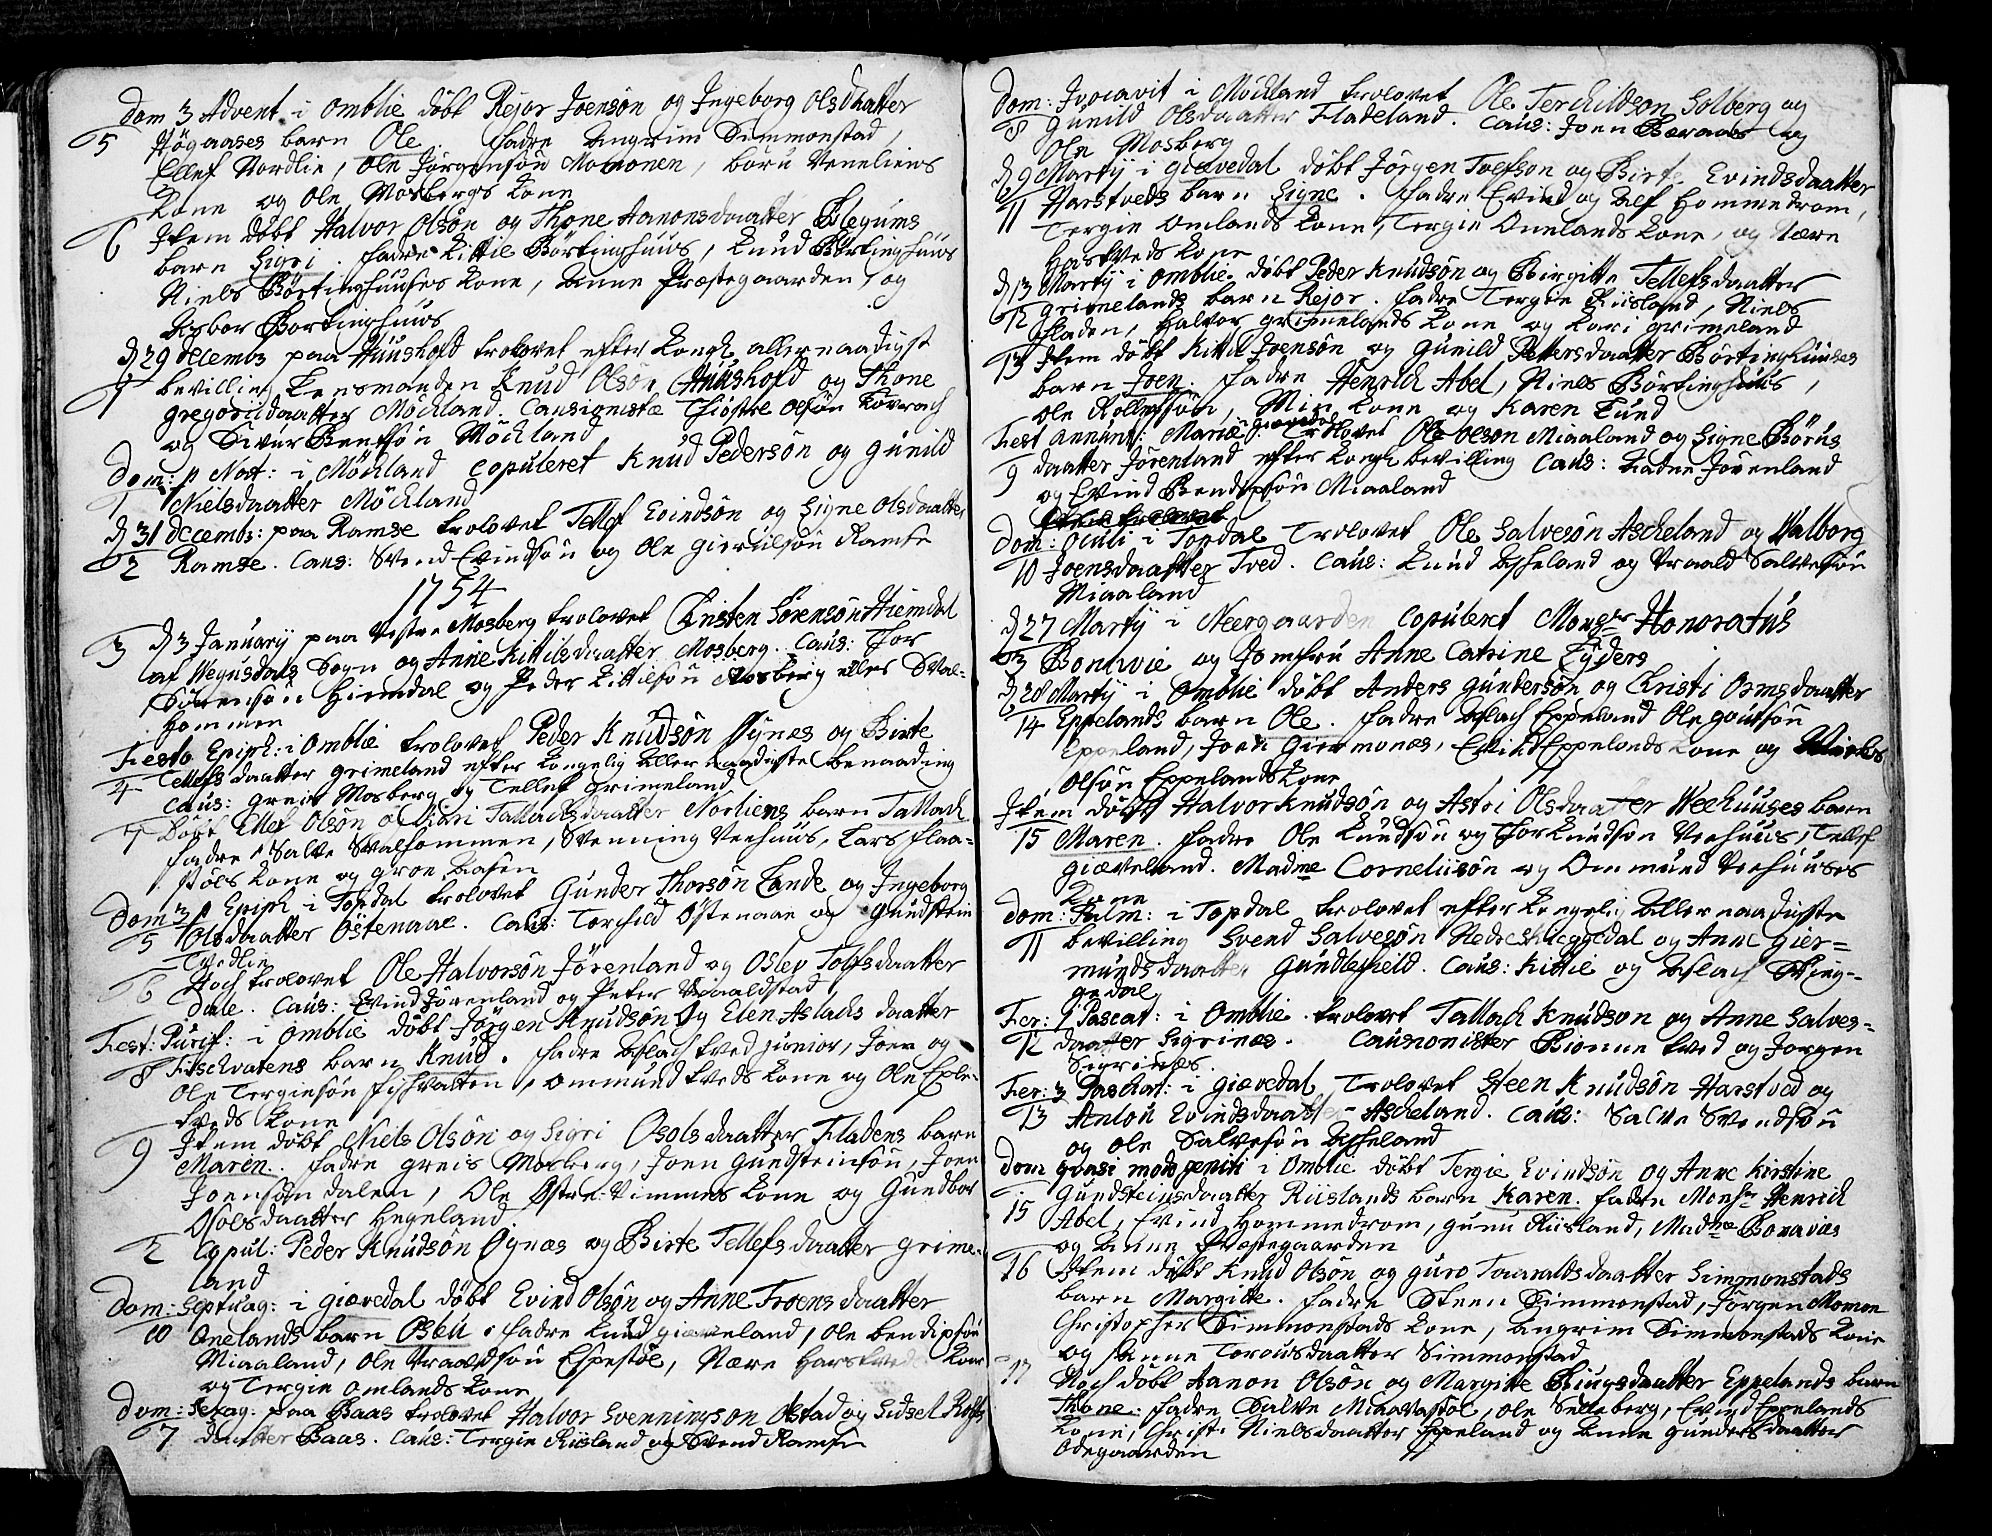 Dom 3 Advent. i Omblie döbt Rejor Joensön og Ingeborg Olsdaatter
5 Högaases barn Ole. Fadre Angrim Simmonstad,
Ellef Nordlie, Ole Jörgensön Momonen, Börü Veneliens
Kone og Ole Mosbergs Kone
6 Item döbt Halvor Olsön og Thone Aanonsdaatter Blegums
barn Sigri. Fadre Kittil Börtinghuus, Knud Börtinghuus
Niels Börtinghuuses Kone, Anne Præstegaarden, og
Asbor Börtinghuus
d 29 Decembr paa Huushold trolovet efter Kongl. allernaadigst
bevilling Lensmanden Knud Olsön Huushold og Thone
Gregorii daatter Möckland. Cautionistæ Thiöstel Olsön Kovrach
og Sivur Bentsön Möckland
Dom: p Nat: i Möckland copuleret Knud Pedersön og Gunild
1 Nielsdaatter Möckland
d 31 Decembr: paa Ramse trolovet Tellef Evindsön og Signe Olsdaatter
2 Ramse. Caus: Svend Evindsön og Ole Gierulsön Ramse
1754
3 d 3 Januarij paa Vestre Mosberg trolovet Christen Sörensön Hiemdal
af Wegusdals Sogn og Anne Kittilsdaatter Mosberg. Caus: Thor
Sörensön Hiemdal og Peder Kittilsön Mosberg elles Sval-
hommen
Festo Epiph: i Omblie trolovet Peder Knudsön Öynes og Birte
4 Tellefsdaatter Grimeland efter Kongelig Allernaadigste benaading
Caus: Greis Mosberg og Tellef Grimeland
7 Döbt Ellef Olsön og Kari Tallachsdaatter Norliens barn Tallach
Fadre Salve Svalhommen, Svenning Veehuus, Lars Flaa-
stöls Kone og Groe Aasen
Dom 3 p Epiph i Topdal trolovet Gunder Thorsön Lande og Ingeborg
5 Olsdaatter Östenaae. Caus: Torchild Östenaae og Gundstein
Tvedlie
6 Noch trolovet Ole Halvorsön Jörenland og Oslev Tolfsdaatter
Dale. Caus: Evind Jörenland og Peter Vraaldstad
Fest: Purif: i Omblie döbt Jörgen Knudsön og Elen Aslachs daatter
8 Fischvatens barn Knud. Fadre Aslach Tved junior, Joen og
Ole Terginsön Fischvatten, Ommund Tveds Kone og Ole Eple-
tveds Kone
9 Item döbt Niels Olsön og Sigri Osols daatter Fladens barn
Maren. Fadre Greis Mosberg, Joen Gundsteinsön, Joen
Joensön Dalen, Ole Östre Vimmes Kone og Gundbor
Osolsdaatter Hegeland
2 Copul: Peder Knudsön Öynæs og Birte Tellefsdaatter Grime-
land
Dom: Septuag: i Giævedal döbt Evind Olsön og Anne Troensdaatter
10 Onelands barn Osleu. Fadre Knud Giæveland, Ole Bendixsön
Miaaland, Ole Vraaldsön Espestöl, Nære Harstveds Kone
og Tergie Omlands Kone
Dom: Sexag: paa Baas trolovet Halvor Svenningson Ostad og Sidsel Rolfs
7 daatter Baas. Caus: Tergie Riisland og Svend Ramse
Dom: Invocavit i Möckland trolovet Ole Terchildson Solberg og
8 Gunild Olsdaatter Fladeland. Caus: Joen Beraas og
Ole Mosberg
d 9 Martij i Giævedal döbt Jörgen Tvedson og Birte Evindsdaatter
11 Harstveds barn Signe. Fadre Evind og Alf Hommedrom,
Tergie Omlands Kone, Tergie Onelands Kone, og Nære
Harstveds Kone
d 13 Martij i Omblie döbt Peder Knudsön og Birgitte Tellefsdaatter
12 Grimelands barn Rejor. Fadre Tergie Riisland, Niels
Fladen, Halvor Grimelands Kone og Kari Grimeland
13 Item döbt Kittil Joensön og Gunild Pettersdaatter Börtinghuuses
barn Joen. Fadre Henrich Abel, Niels Börtinghuus,
Ole Rollefsön, Min Kone og Karen Lund
Giævedal
Fest Annunt: Mariæ Trolovet Ole Olson Miaaland og Signe Börus
9 daatter Jörenland efter Kongl bevilling Caus: Aadne Jörenland
og Evind Bendixsön Miaaland
Dom: Oculi i Topdal Trolovet Ole Salvesön Ascheland og Walborg
10 Joensdaatter Tved. Caus: Knud Ascheland og Vraald Salvesön
Miaaland
d 27 Martij i Neergaarden copuleret Monsr Honoratus
3 Bonavie og Jomfru Anne Catrine Eyders
d 28 Martij i Omblie döbt Anders Gundersön og Christi Ormsdaatter
14 Eppelands barn Ole. Fadre Aslach Eppeland Ole Goutsön
Eppeland, Joen Giermonæs, Evind Eppelands Kone og
Olsön Eppelands Kone
Item döbt Halvor Knudsön og Astri Olsdaatter Weehuuses barn
15 Maren. Fadre Ole Knudsön og Thor Knudsön Veehuus, Tellef
Giæveland. Madme Corneliisön og Ommund Veehuuses
Kone
Dom: Palm: i Topdal trolovet efter Kongelig Allernaadigste
11 bevilling Svend Salvesön Nedreskieggedal og Anne Gier=
mundsdaatter Gundlesheld. Caus: Kittil og Aslach Skieg-
gedal
Fer: 1 Pascat: i Omblie trolovet Tallach Knudson og Anne Salves=
12 daatter Sigrinæs. Causionister Biönne Tved og Jorgen
Sigrinæs.
Fer: 3 Paschat: i Giævedal Trolovet Steen Knudsön Harstved og
13 Anlou Evindsdaatter Ascheland. Caus: Salve Svendsön
og Ole Salvesön Ascheland
Dom qvasi modo geniti i Omblie döbt Tergie Evindsön og Anne Kirstine
15 Gundsteinsdaatter Riislands barn Karen. Fadre Monsr Henrich
Abel, Evind Hommedrom, Gunu Riisland, Madme Bonavies
og Anne Præstegaarden
16 Item döbt Knud Olsön og Guro Taaraldsdaatter Simmonstads
barn Margitte. Fadre Steen Simmonstad, Jörgen Momen
Christopher Simmonstads Kone, Angrim Simmonstads Kone
og Anne Terowsdaatter Simmonstad
17 Noch döbt Aanon Olsön og Margitte Biugsdaatter Eppelands barn
Thone. Fadre Salve Miaavasöl, Ole Selleberg, Evind Eppelands
Kone, Christi Nielsdaatter Eppeland og Anne Gundersdaatter
Ödegaarden